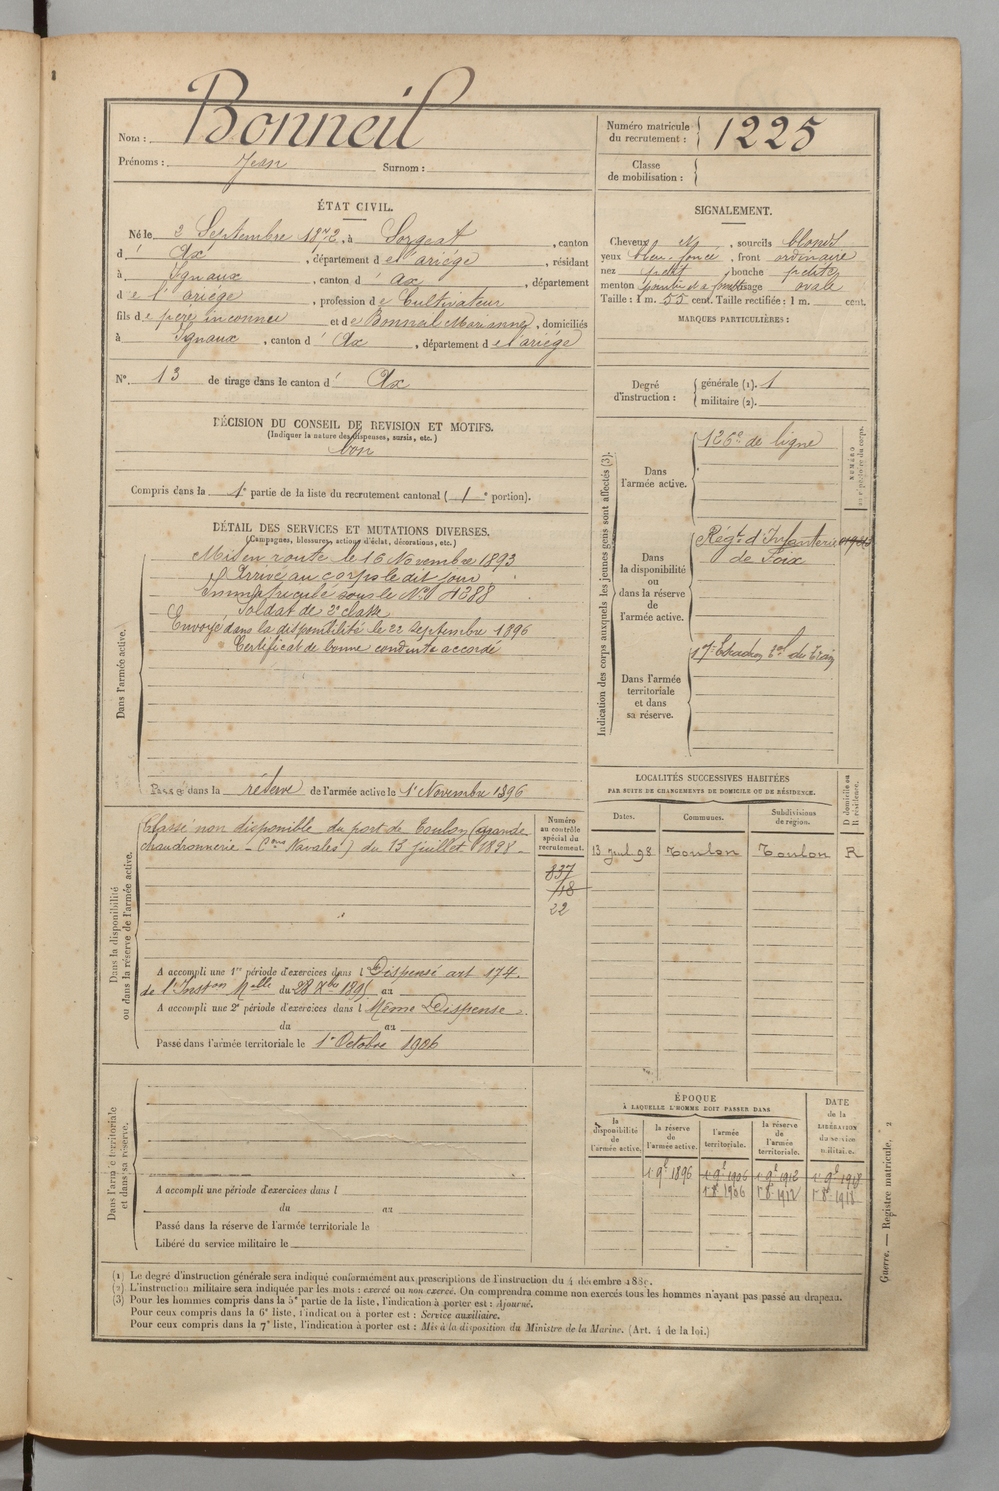 Nom : Bonneil
Prénoms : Jean Surnom :
Numéro matricule du recrutement : 1225
Classe de mobilisation :
ÉTAT CIVIL.
Né le 2 Septembre 1872, à Sorgeat, canton
d' Ax, département de l'ariège, résidant
à Ignaux, canton d' Ax, département
de l'ariége, profession de Cultivateur
fils de père inconnu et de Bonneil Marianne, domiciliés
à Ignaux, canton d' Ax, département de l'ariége
N° 13 de tirage dans le canton d' Ax
SIGNALEMENT.
Cheveux N, sourcils blonds
yeux bleu foncé, front ordinaire
nez petit, bouche petite
menton pointu et à fossette visage ovale
Taille : 1 m. 55 cent. Taille rectifiée : 1 m. cent.
MARQUES PARTICULIÈRES :
Degré d'instruction : générale (1). 1
militaire (2).
DÉCISION DU CONSEIL DE REVISION ET MOTIFS.
(Indiquer la nature des dispenses, sursis, etc.)
bon
Compris dans la 1e partie de la liste du recrutement cantonal ( 1e portion).
DÉTAIL DES SERVICES ET MUTATIONS DIVERSES.
(Campagnes, blessures, actions d'éclat, décorations, etc.)
Dans l'armée active.
Mis en route le 16 Novembre 1893
Arrivé au corps le dit jour
Immatriculé sous le N° 4288
Soldat de 2e classe
Envoyé dans la disponibilité le 22 Septembre 1896
Certificat de bonne conduite accordé
Passé dans la réserve de l'armée active le 1er Novembre 1896
Indication des corps auxquels les jeunes gens sont affectés (3).
NUMÉRO au répertoire du corps.
Dans l'armée active.
126e de ligne
Dans la disponibilité ou dans la réserve de l'armée active.
Régt d'Infanterie
de Foix
Dans l'armée territoriale et dans sa réserve.
17e Escadron Tal du Train
LOCALITÉS SUCCESSIVES HABITÉES
PAR SUITE DE CHANGEMENTS DE DOMICILE OU DE RÉSIDENCE.
D. domicile ou R. résidence.
Dates. Communes. Subdivisions de région.
13 Juil 98 Toulon Toulon R
Dans la disponibilité ou dans la réserve de l'armée active.
Numéro au contrôle spécial du recrutement.
Classé non disponible du port de Toulon (grande
chaudronnerie - Cons Navales) du 13 juillet 1898 -
837
718
22
A accompli une 1re période d'exercices dans l Dispensé art 174.
de l'Inston Melle du 28 Xbre 1895 au
A accompli une 2e période d'exercices dans l Même Dispense
du au
Passé dans l'armée territoriale le 1er Octobre 1906
Dans l'armée territoriale et dans sa réserve.
A accompli une période d'exercices dans l
du au
Passé dans la réserve de l'armée territoriale le
Libéré du service militaire le
ÉPOQUE
À LAQUELLE L'HOMME DOIT PASSER DANS
DATE de la LIBÉRATION du service militaire.
la disponibilité de l'armée active. la réserve de l'armée active. l'armée territoriale. la réserve de l'armée territoriale.
1 9e 1896 1 9e 1906 1 9e 1912 1 9e 1918
1 8e 1906 1 8e 1912 1 8e 1918
(1) Le degré d'instruction générale sera indiqué conformément aux prescriptions de l'instruction du 4 décembre 1889.
(2) L'instruction militaire sera indiquée par les mots : exercé ou non exercé. On comprendra comme non exercés tous les hommes n'ayant pas passé au drapeau.
(3) Pour les hommes compris dans la 5e partie de la liste, l'indication à porter est : Ajourné.
Pour ceux compris dans la 6e liste, l'indication à porter est : Service auxiliaire.
Pour ceux compris dans la 7e liste, l'indication à porter est : Mis à la disposition du Ministre de la Marine. (Art. 4 de la loi.)
Guerre. — Registre matricule. 2